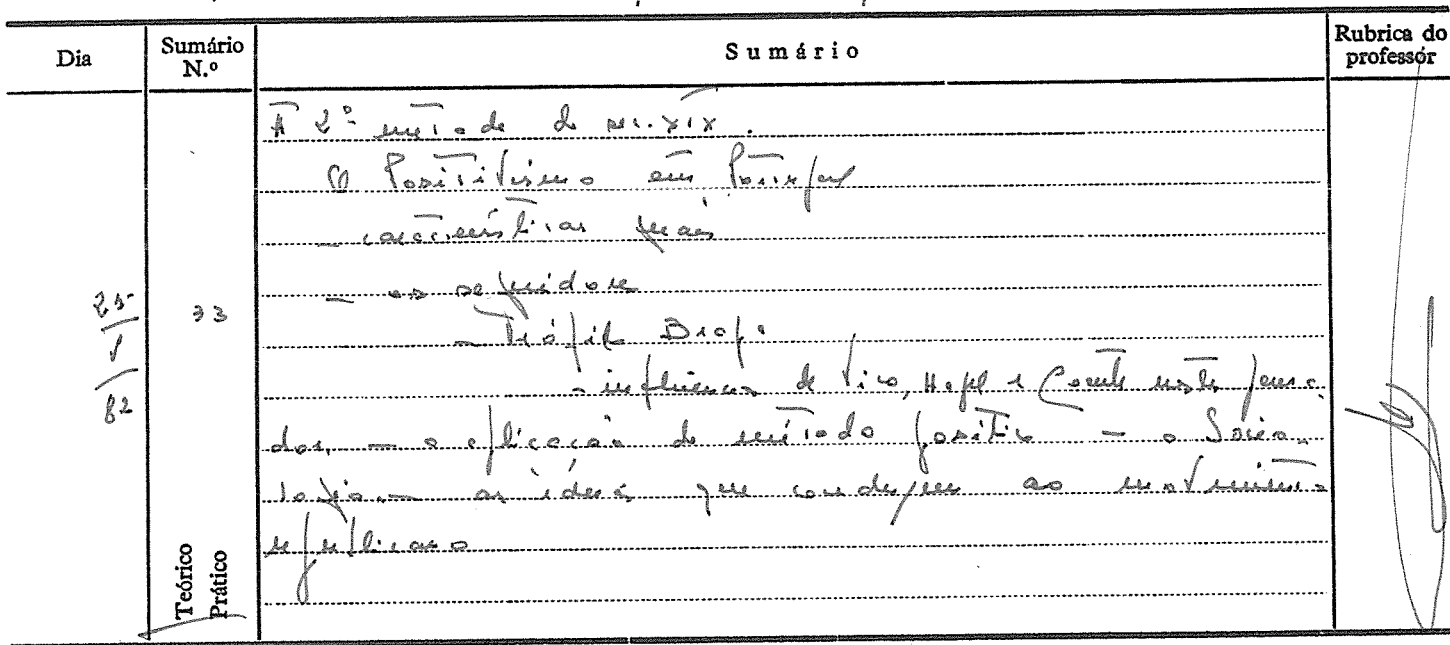 Dia
Sumário N.º
Sumário
Rubrica do professor
A 2ª metade do séc. XIX.
O Positivismo em Portugal
- características gerais
- os seguidores
- Teófilo Braga
- influência de Vico, Hegel e Comte neste pensa-
dor. - a aplicação do método positivo - a Socio-
logia. - as ideias que conduzem ao movimento
republicano
25
82
33
Teórico
Prático